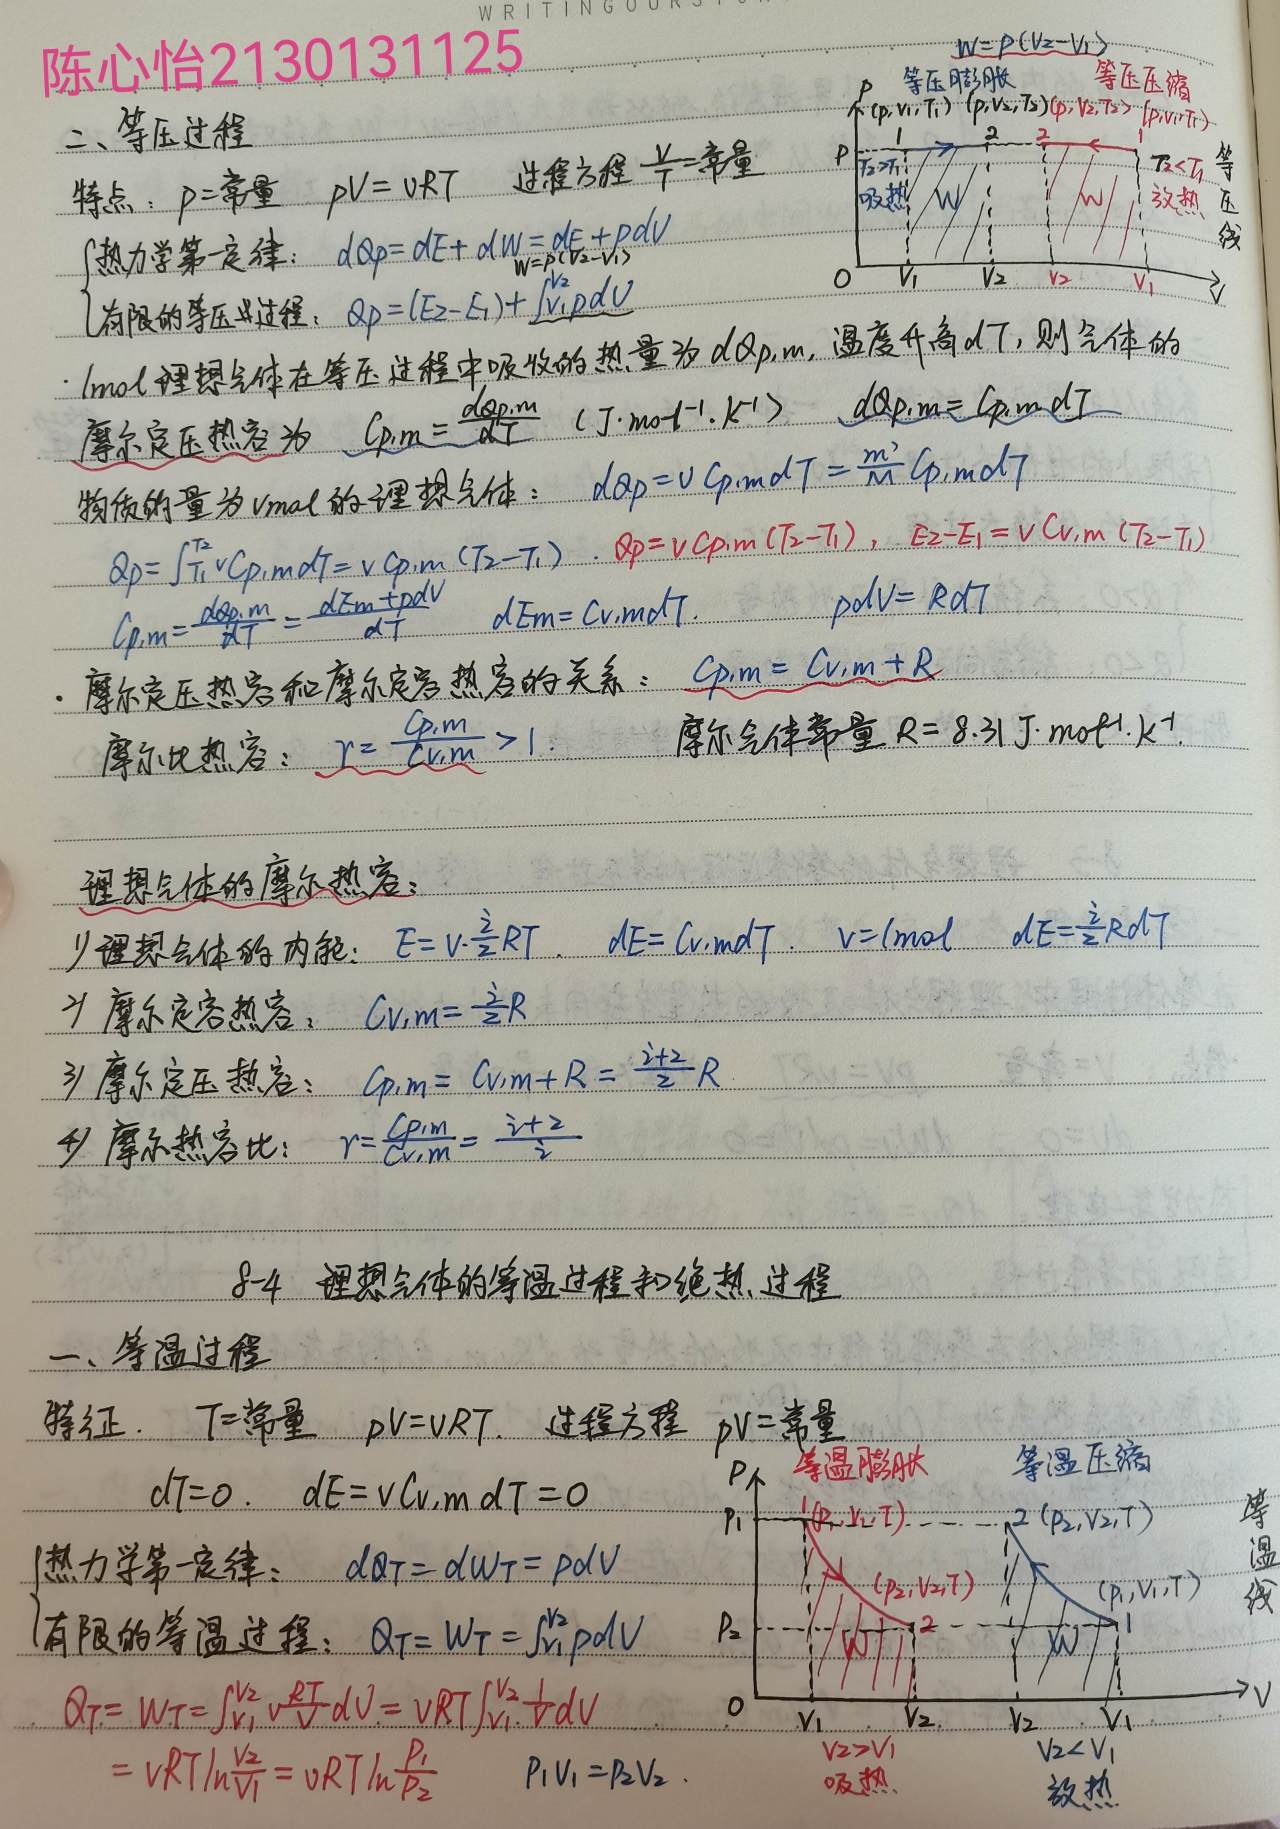 WRITINGOURSTOR
陈心怡2130131125
W=p(V2-V1)
等压膨胀 等压压缩
P (p,V1,T1) (p,V2,T2) (p,V2,T2) (p,V1,T1)
1 2 2 1
P T2>T1 吸热 W W T2<T1 放热 等压线
O V1 V2 V2 V1 V
二、等压过程
特点：p=常量 pV=νRT 过程方程 V/T=常量
热力学第一定律：dQp=dE+dW=dE+pdV
W=p(V2-V1)
有限的等压过程：Qp=(E2-E1)+∫V1V2 pdV
·1mol理想气体在等压过程中吸收的热量为dQp,m，温度升高dT，则气体的
摩尔定压热容为 Cp,m=dQp,m/dT (J·mol⁻¹·K⁻¹) dQp,m=Cp,mdT
物质的量为νmol的理想气体：dQp=νCp,mdT=m'/M Cp,mdT
Qp=∫T1T2 νCp,mdT=νCp,m(T2-T1). Qp=νCp,m(T2-T1)，E2-E1=νCv,m(T2-T1)
Cp,m=dQp,m/dT=dEm+pdV/dT dEm=Cv,mdT. pdV=RdT
·摩尔定压热容和摩尔定容热容的关系：Cp,m=Cv,m+R
摩尔比热容：γ=Cp,m/Cv,m>1. 摩尔气体常量R=8.31J·mol⁻¹·K⁻¹.
理想气体的摩尔热容：
1)理想气体的内能：E=ν·i/2RT. dE=Cv,mdT. ν=1mol dE=i/2RdT
2)摩尔定容热容：Cv,m=i/2R
3)摩尔定压热容：Cp,m=Cv,m+R=i+2/2 R
4)摩尔热容比：γ=Cp,m/Cv,m=i+2/i
8-4 理想气体的等温过程和绝热过程
一、等温过程
特征. T=常量 pV=νRT. 过程方程 pV=常量
dT=0. dE=νCv,mdT=0
热力学第一定律：dQT=dWT=pdV
有限的等温过程：QT=WT=∫V1V2 pdV
QT=WT=∫V1V2 νRT/V dV=νRT∫V1V2 1/V dV
=νRTlnV2/V1=νRTlnP1/P2 P1V1=P2V2.
等温膨胀 等温压缩
P
P1 1(P1,V1,T) 2(P2,V2,T) 等温线
(P2,V2,T) (P1,V1,T)
P2 W 2 W 1
O V1 V2 V2 V1 V
V2>V1 V2<V1
吸热 放热